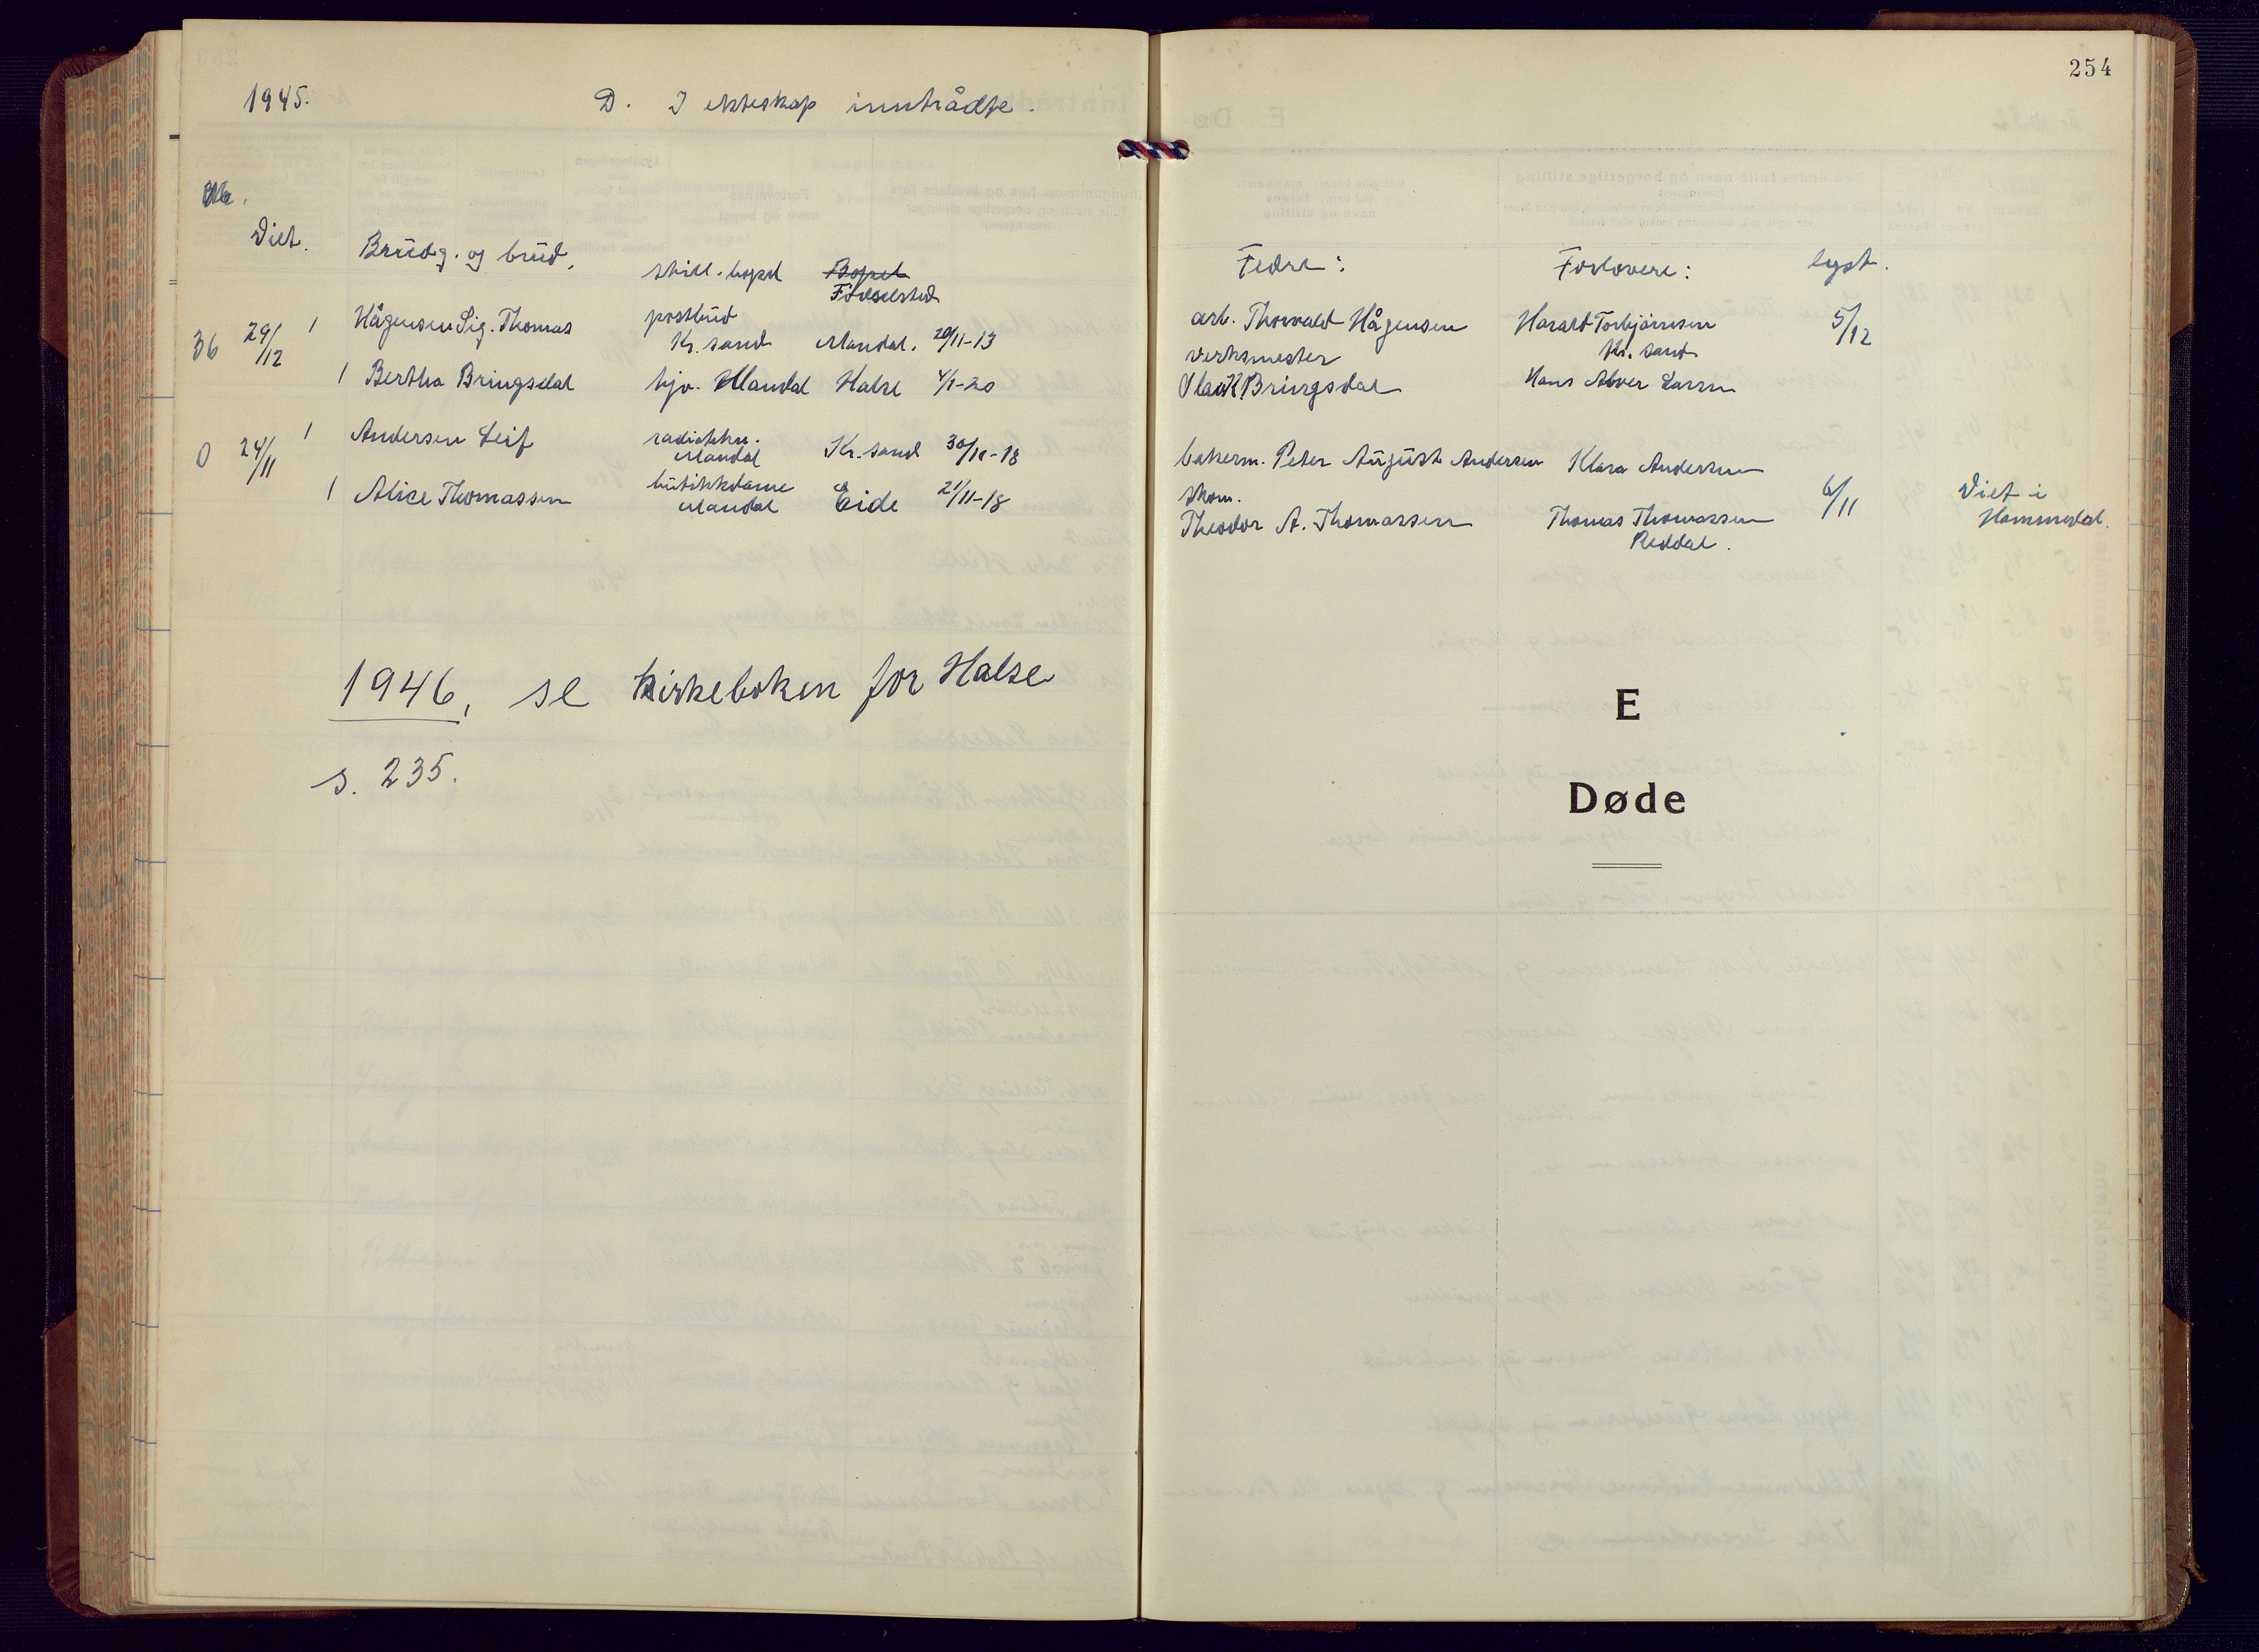 1945. D. I ekteskap inntrådte.
Nr.
Viet. Brudg. og brud, still. bopel Bopel
Fødselsted
36 29/12 1 Hågensen Sig. Thomas postbud
Kr. sand Mandal. 20/11-13
1 Bertha Bringsdal hjv. Mandal Halse 4/1-20
0 24/11 1 Andersen Leif
Mandal Kr. sand 30/11-18
1 Alice Thomassen butikkdame
Mandal Eide 21/11-18
1946, se kirkeboken for Halse
s. 235.
254
Fedre: Forlovere: lyst.
arb. Thorvald Hågensen Harald Torbjørnsen 5/12
verksmester Kr. sand
Olav K. Bringsdal Hans Alver Larsen
bakerm. Peter August Andersen Klara Andersen
skom.
Theodor A. Thomassen Thomas Thomassen 6/11 Viet i
Reddal. Hommedal.
E
Døde